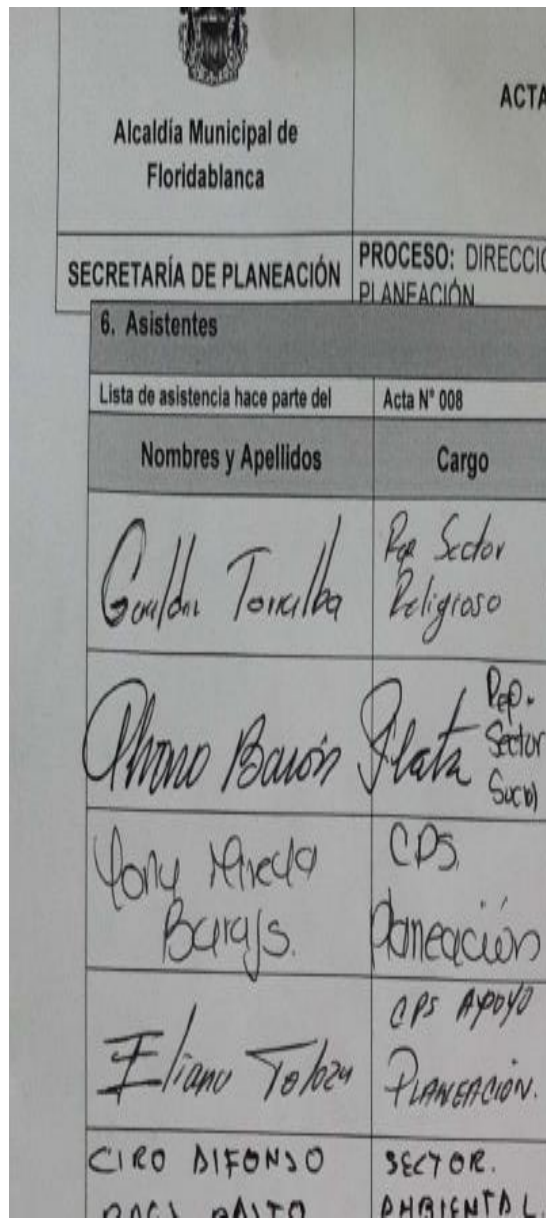 ACTA
Alcaldía Municipal de
Floridablanca
SECRETARÍA DE PLANEACIÓN
PROCESO: DIRECCIO
PLANEACIÓN
6. Asistentes
Lista de asistencia hace parte del
Acta N° 008
Nombres y Apellidos
Cargo
Torralba
Rep Sector
Religioso
Barón Plata
Rep.
Sector
Social
Yony
CPS.
Planeación
Eliana Toloza
CPS APOYO
PLANEACIÓN.
CIRO ALFONSO
SECTOR.
AMBIENTAL.